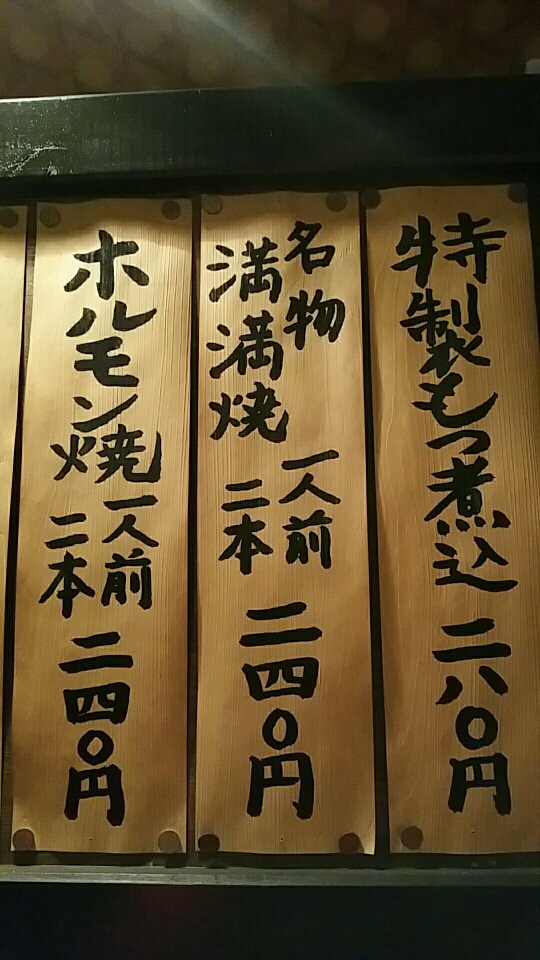 特製もつ煮込 二八〇円
名物
満満焼
一人前
二本
二四〇円
ホルモン焼
一人前
二本
二四〇円